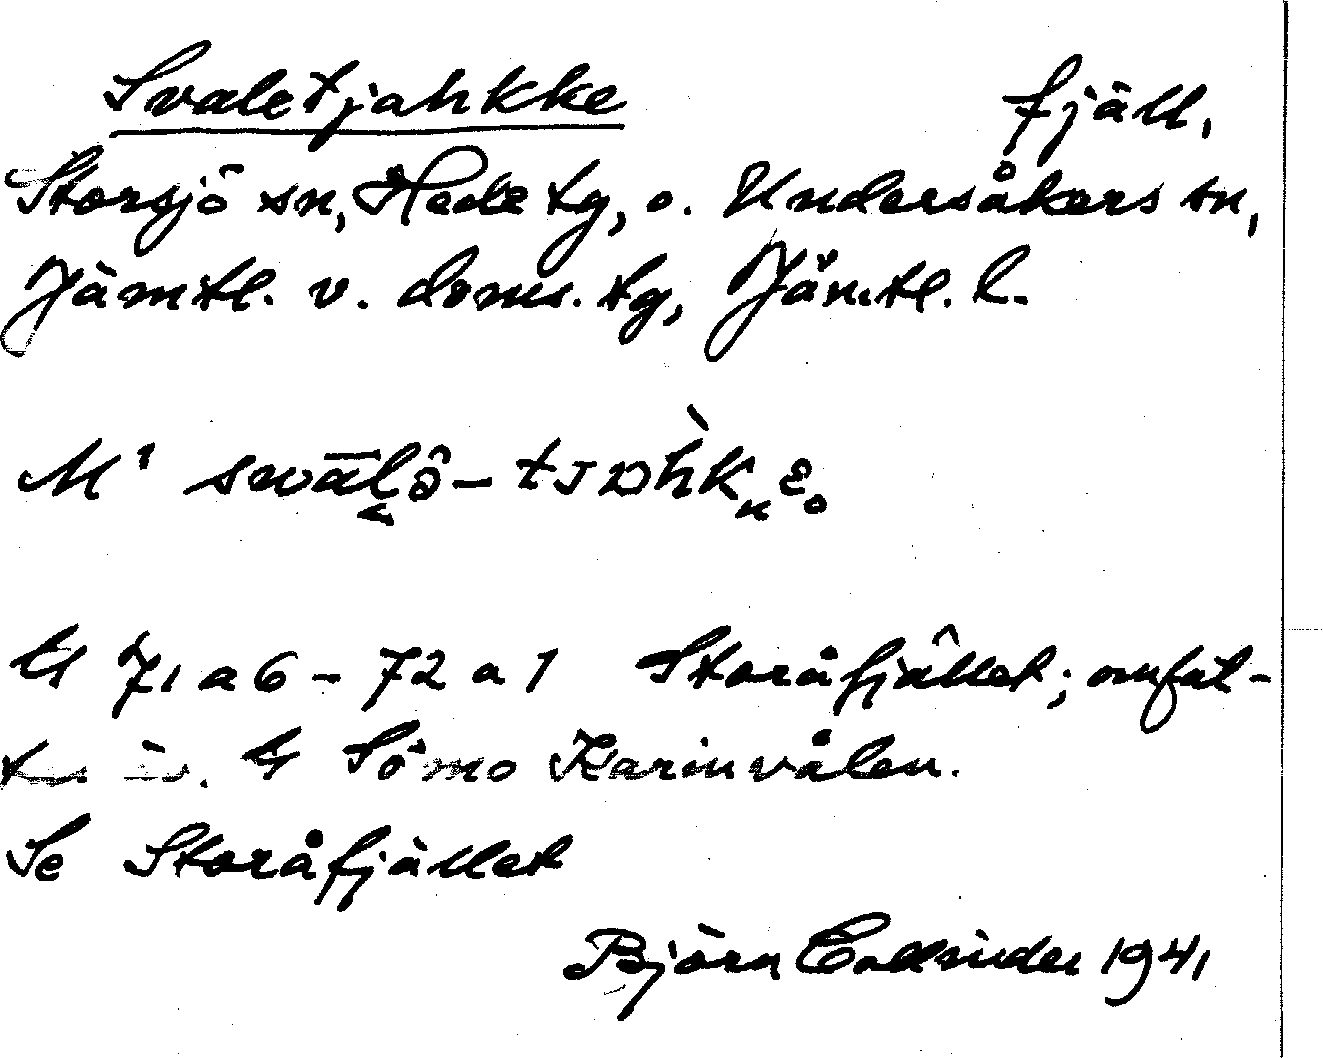 Svaletjahkke fjäll,
Storsjö sn, Hede tg, o. Undersåkers sn,
Jämtl. v. doms. tg, Jämtl. l.
M¹
71 a 6 - 72 a 1 Storåfjället; omfat-
Sömo Karinvålen.
Se Storåfjället
Björn Collinder 1941